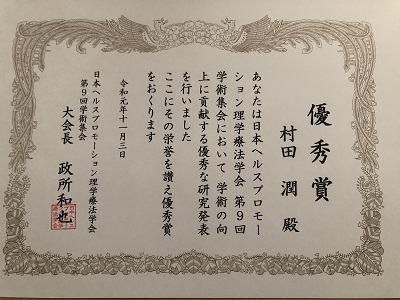 優秀賞
村田 潤 殿
あなたは日本ヘルスプロモー
ション理学療法学会 第9回
学術集会において 学術の向
上に貢献する優秀な研究発表
を行いました
ここにその栄誉を讃え優秀賞
をおくります
令和元年十一月三日
日本ヘルスプロモーション理学療法学会
第9回学術集会
大会長 政所和也